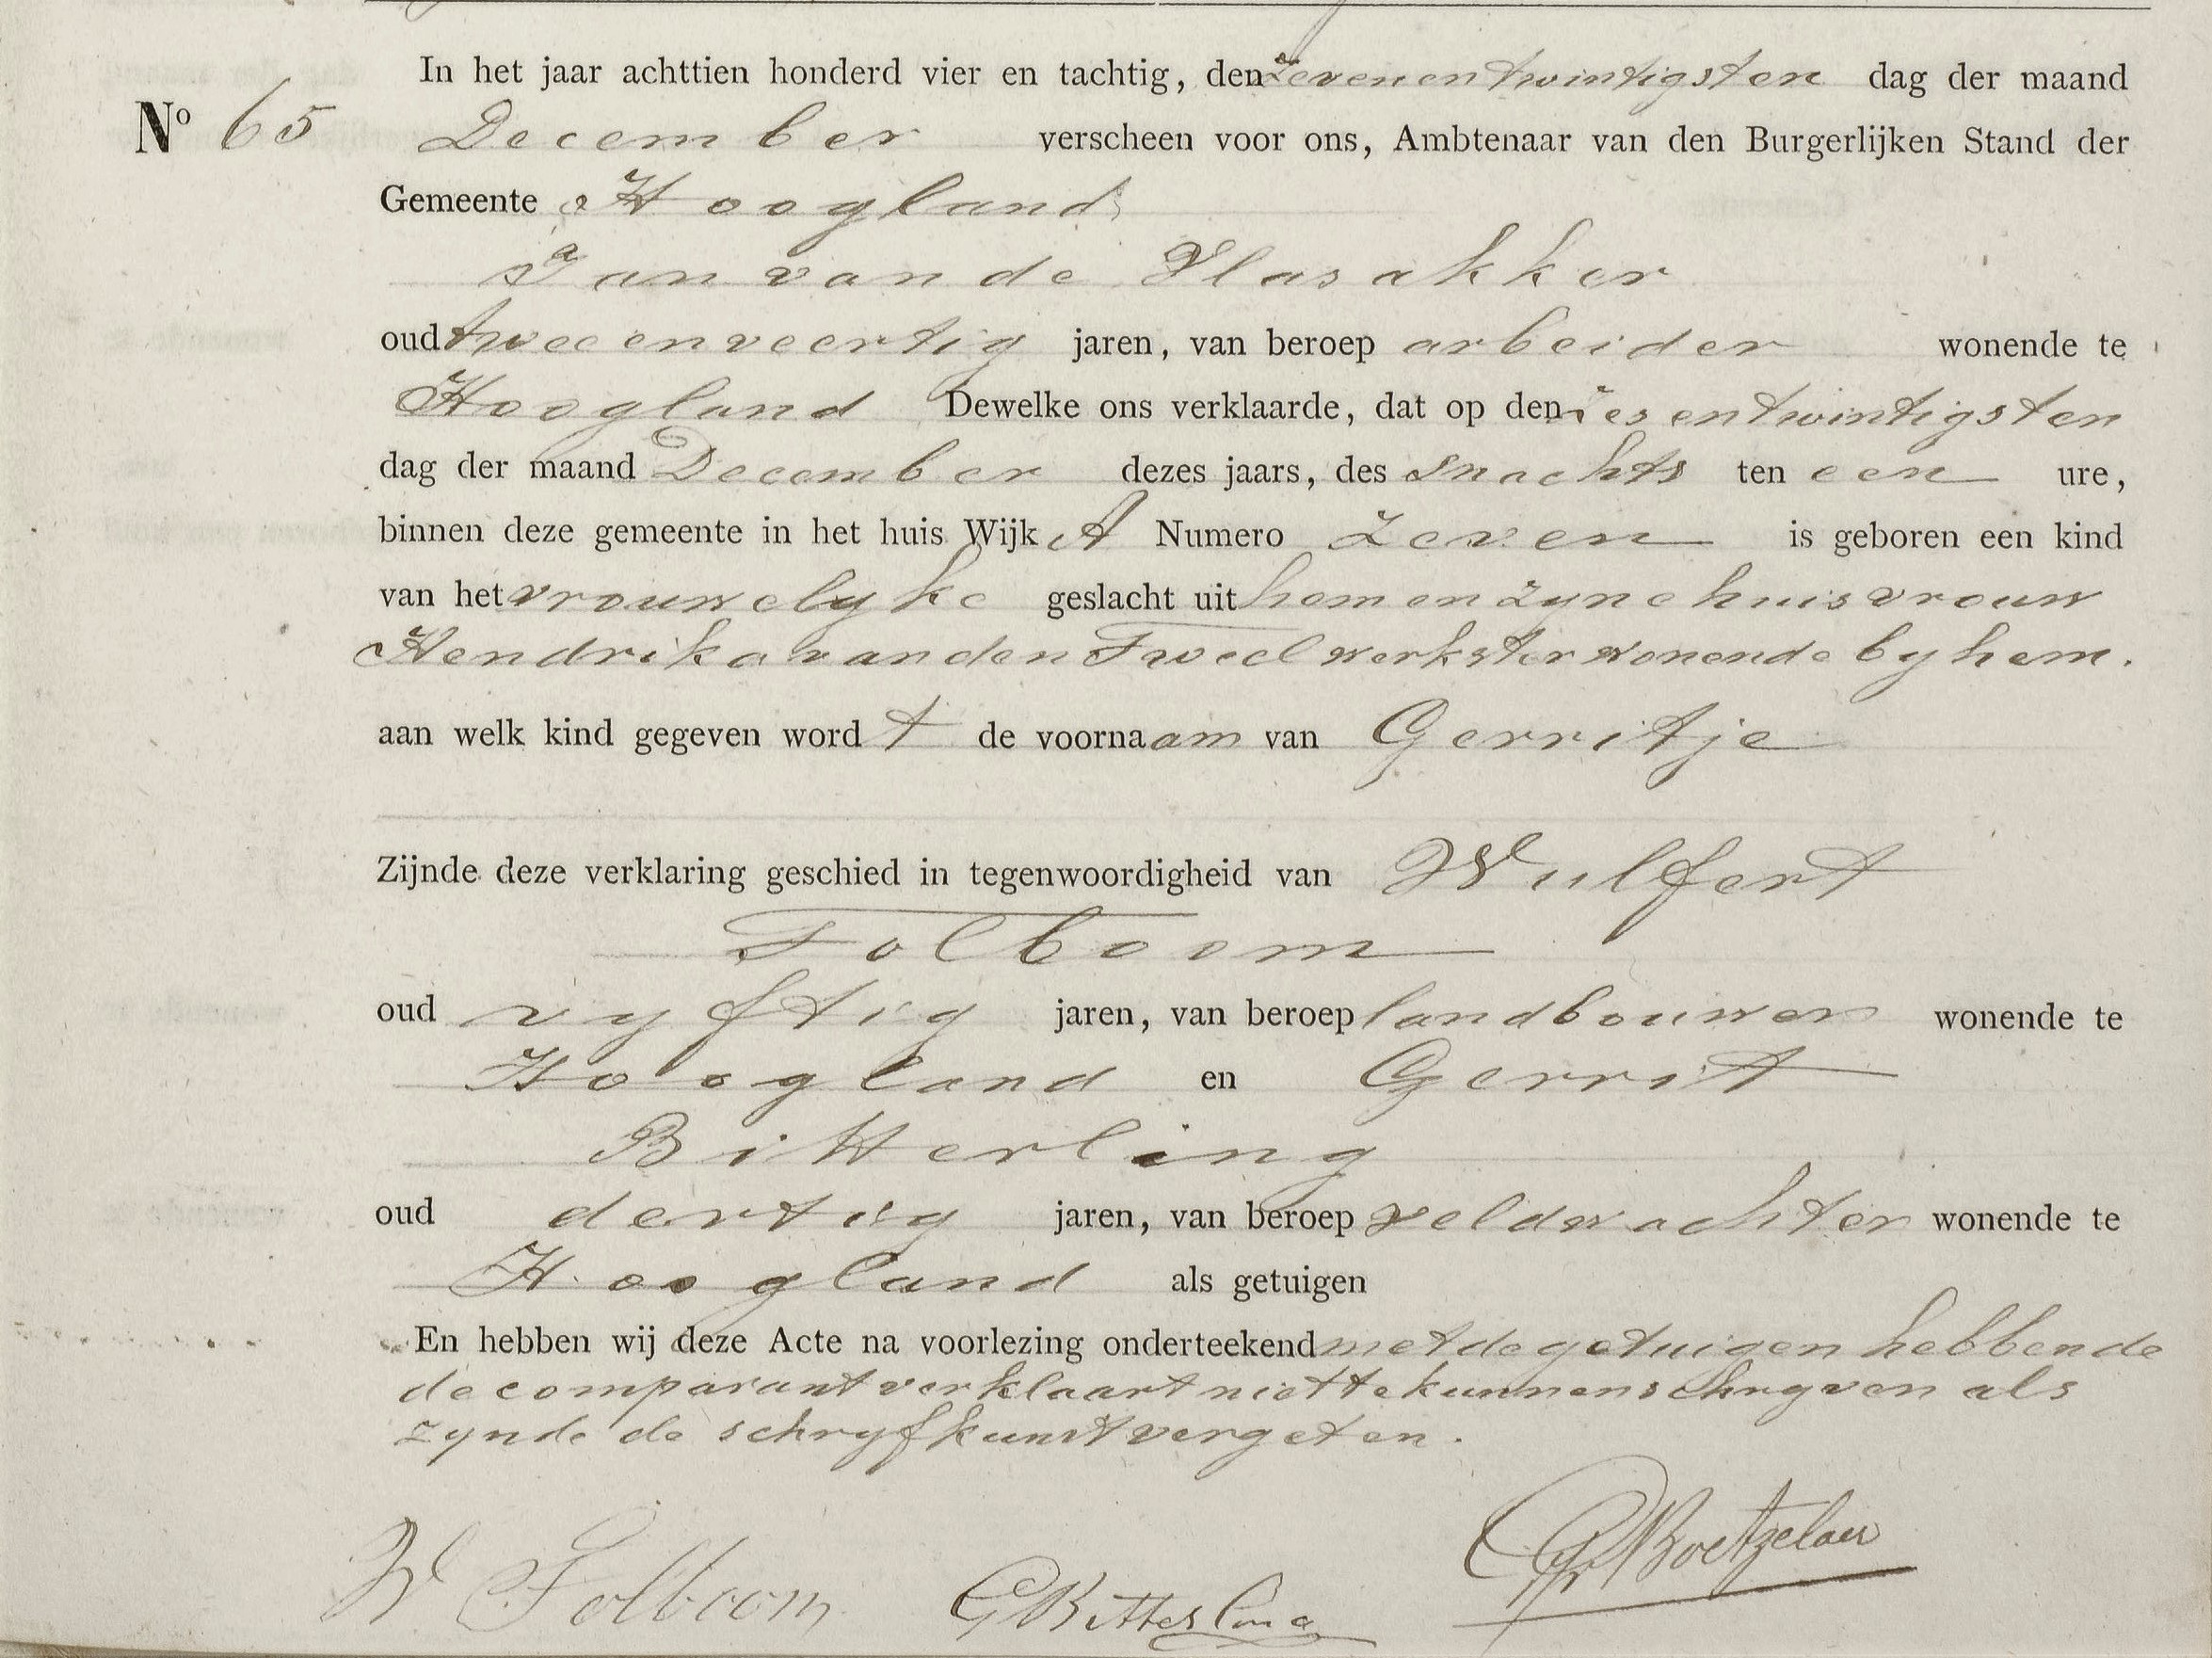 In het jaar achttien honderd vier en tachtig, den zevenentwintigsten dag der maand
No 65 December verscheen voor ons, Ambtenaar van den Burgerlijken Stand der
Gemeente Hoogland
Jan van de Vlasakker
oud tweeenveertig jaren, van beroep arbeider wonende te
Hoogland Dewelke ons verklaarde, dat op den zesentwintigsten
dag der maand December dezes jaars, des snachts ten een ure,
binnen deze gemeente in het huis Wijk A Numero zeven is geboren een kind
van het vrouwelyke geslacht uit hem en zyne huisvrouw
Hendrika van den Tweel werkster wonende by hem.
aan welk kind gegeven wordt de voornaam van Gerritje
Zijnde deze verklaring geschied in tegenwoordigheid van Wulfert
Tolboom
oud vyftig jaren, van beroep landbouwer wonende te
Hoogland en Gerrit
Bitterling
oud dertig jaren, van beroep veldwachter wonende te
Hoogland als getuigen
En hebben wij deze Acte na voorlezing onderteekend met de getuigen hebbende
de comparant verklaart niet te kunnen schryven als
zynde de schryfkunst vergeten.
W Tolboom GBitterling Boetzelaer